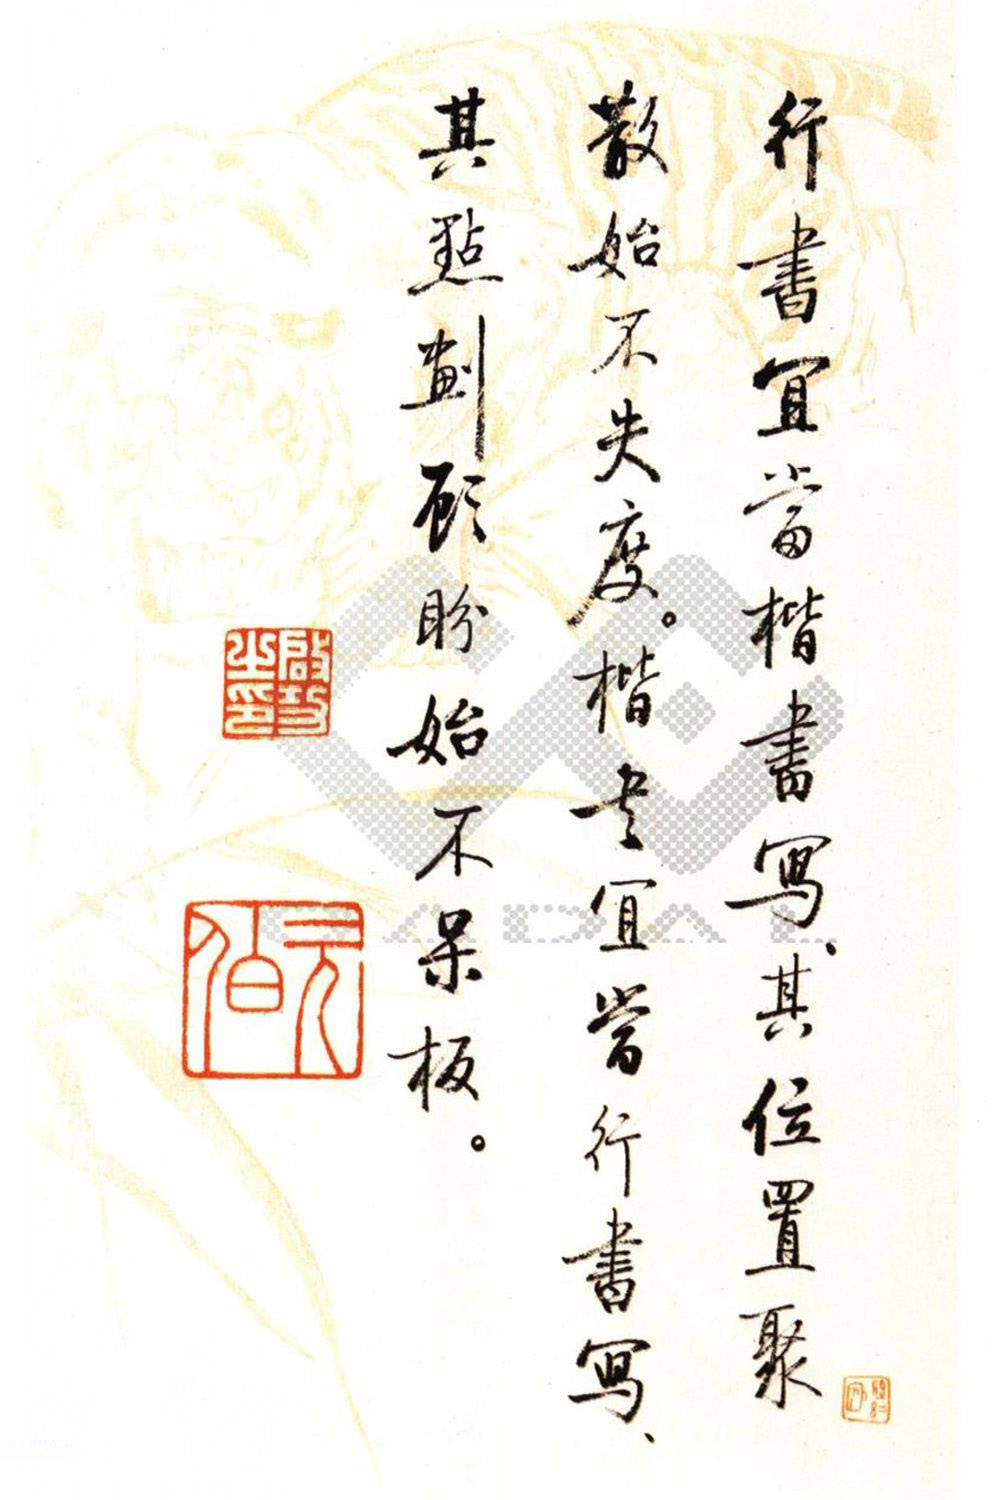 行書宜當楷書寫、其位置聚
散始不失度。楷书宜當行書寫、
其點劃顧盼始不呆板。
啟功之印
元白
CADAL